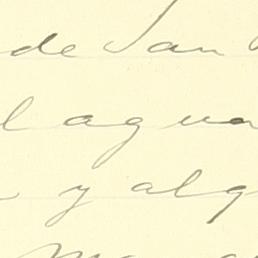 de San
l agua
y alg